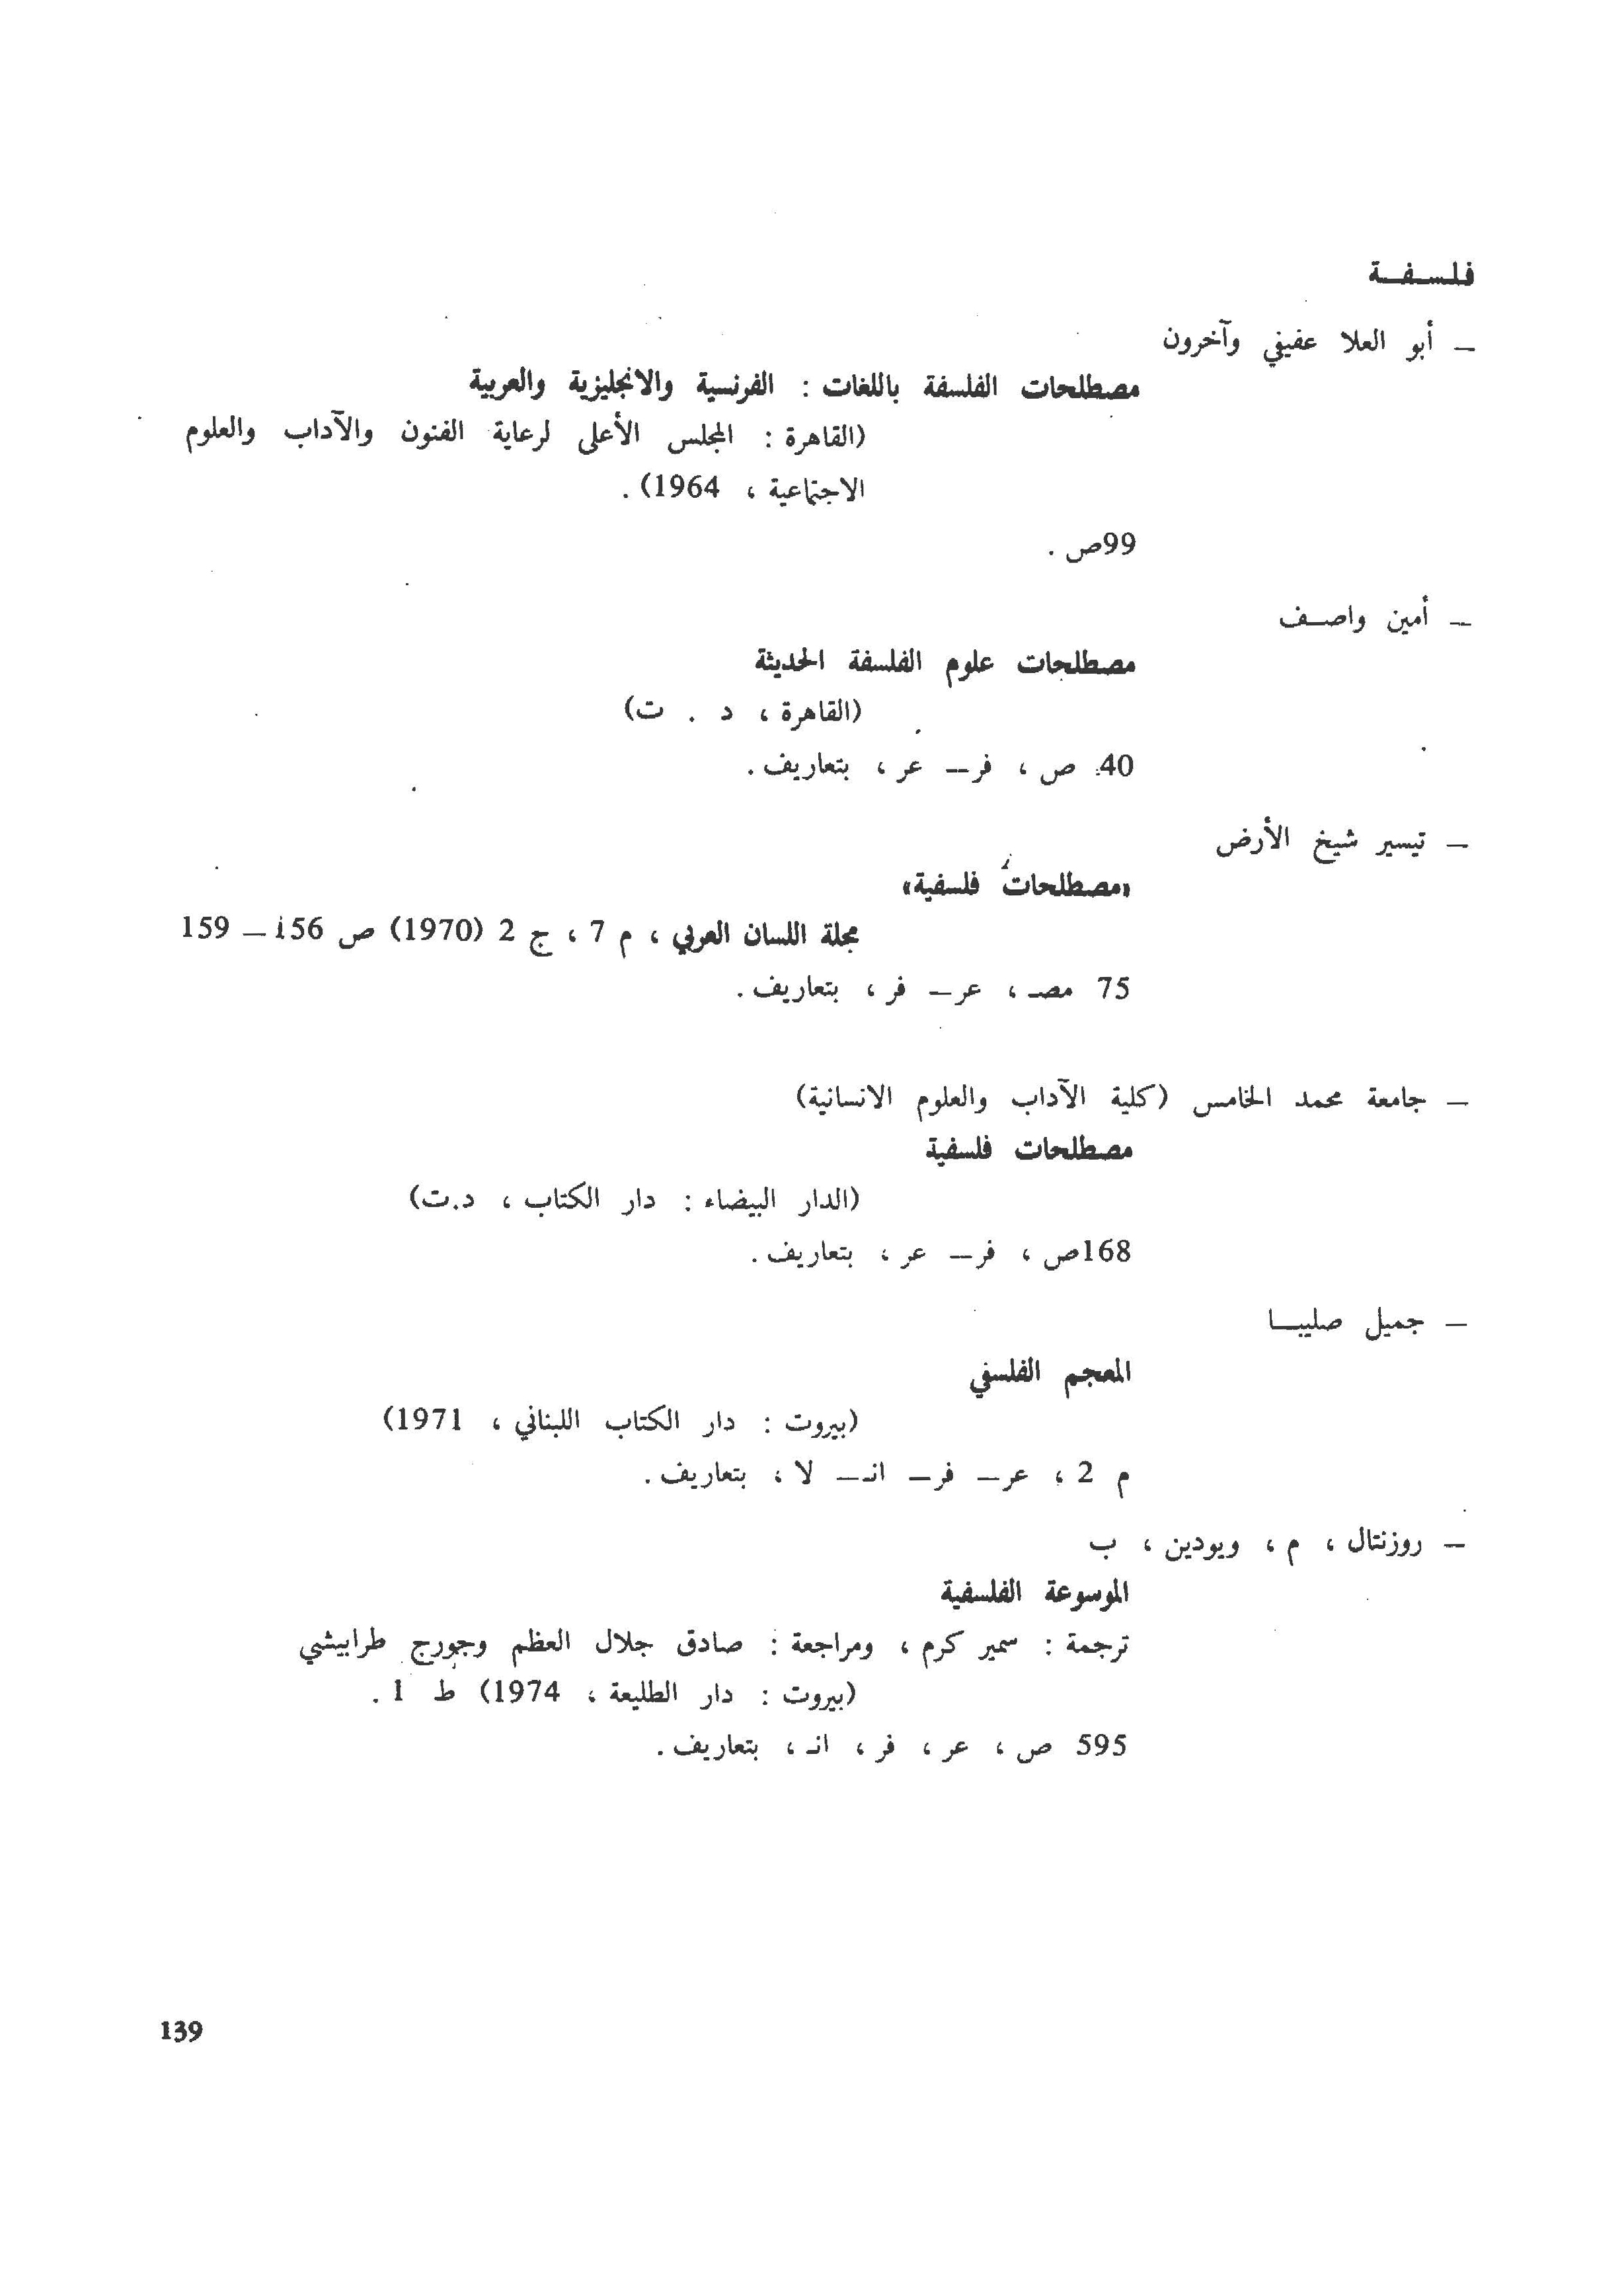 فلسفة
– أبو العلا عفيفي وآخرون
مصطلحات الفلسفة باللغات : الفرنسية والانجليزية والعربية
(القاهرة : المجلس الأعلى لرعاية الفنون والآداب والعلوم
الاجتماعية ، 1964) .
99ص .
– أمين واصف
مصطلحات علوم الفلسفة الحديثة
(القاهرة ، د . ت)
40 ص ، فر– عر ، بتعاريف .
– تيسير شيخ الأرض
«مصطلحات فلسفية»
مجلة اللسان العربي ، م 7 ، ج 2 (1970) ص 156 – 159
75 مصـ ، عر– فر ، بتعاريف .
– جامعة محمد الخامس (كلية الآداب والعلوم الانسانية)
مصطلحات فلسفية
(الدار البيضاء : دار الكتاب ، د.ت)
168ص ، فر– عر ، بتعاريف .
– جميل صليبا
المعجم الفلسفي
(بيروت : دار الكتاب اللبناني ، 1971)
م 2 ، عر– فر– انـ– لا ، بتعاريف .
– روزنتال ، م ، ويودين ، ب
الموسوعة الفلسفية
ترجمة : سمير كرم ، ومراجعة : صادق جلال العظم وجورج طرابيشي
(بيروت : دار الطليعة ، 1974) ط 1 .
595 ص ، عر ، فر ، انـ ، بتعاريف .
139